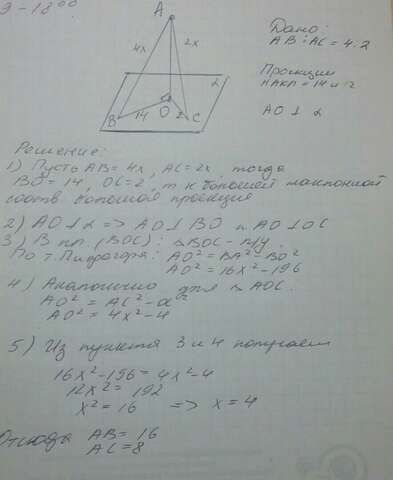 9-18⁰⁰
A
4x
2x
α
B
14
O
2
C
Дано:
AB:AC = 4:2
Проекции
накл = 14 и 2
AO ⊥ α
Решение:
1) Пусть AB = 4x, AC = 2x, тогда
BO = 14, OC = 2, т.к большей наклонной
соотв. большая проекция
2) AO ⊥ α => AO ⊥ BO и AO ⊥ OC
3) В пл. (BOC): ΔBOC - п/у.
По т. Пифагора: AO² = BA² - BO²
AO² = 16x² - 196
4) Аналогично для Δ AOC.
AO² = AC² -
AO² = 4x² - 4
5) Из пунктов 3 и 4 получаем
16x² - 196 = 4x² - 4
12x² = 192
x² = 16 => x = 4
Отсюда AB = 16
AC = 8